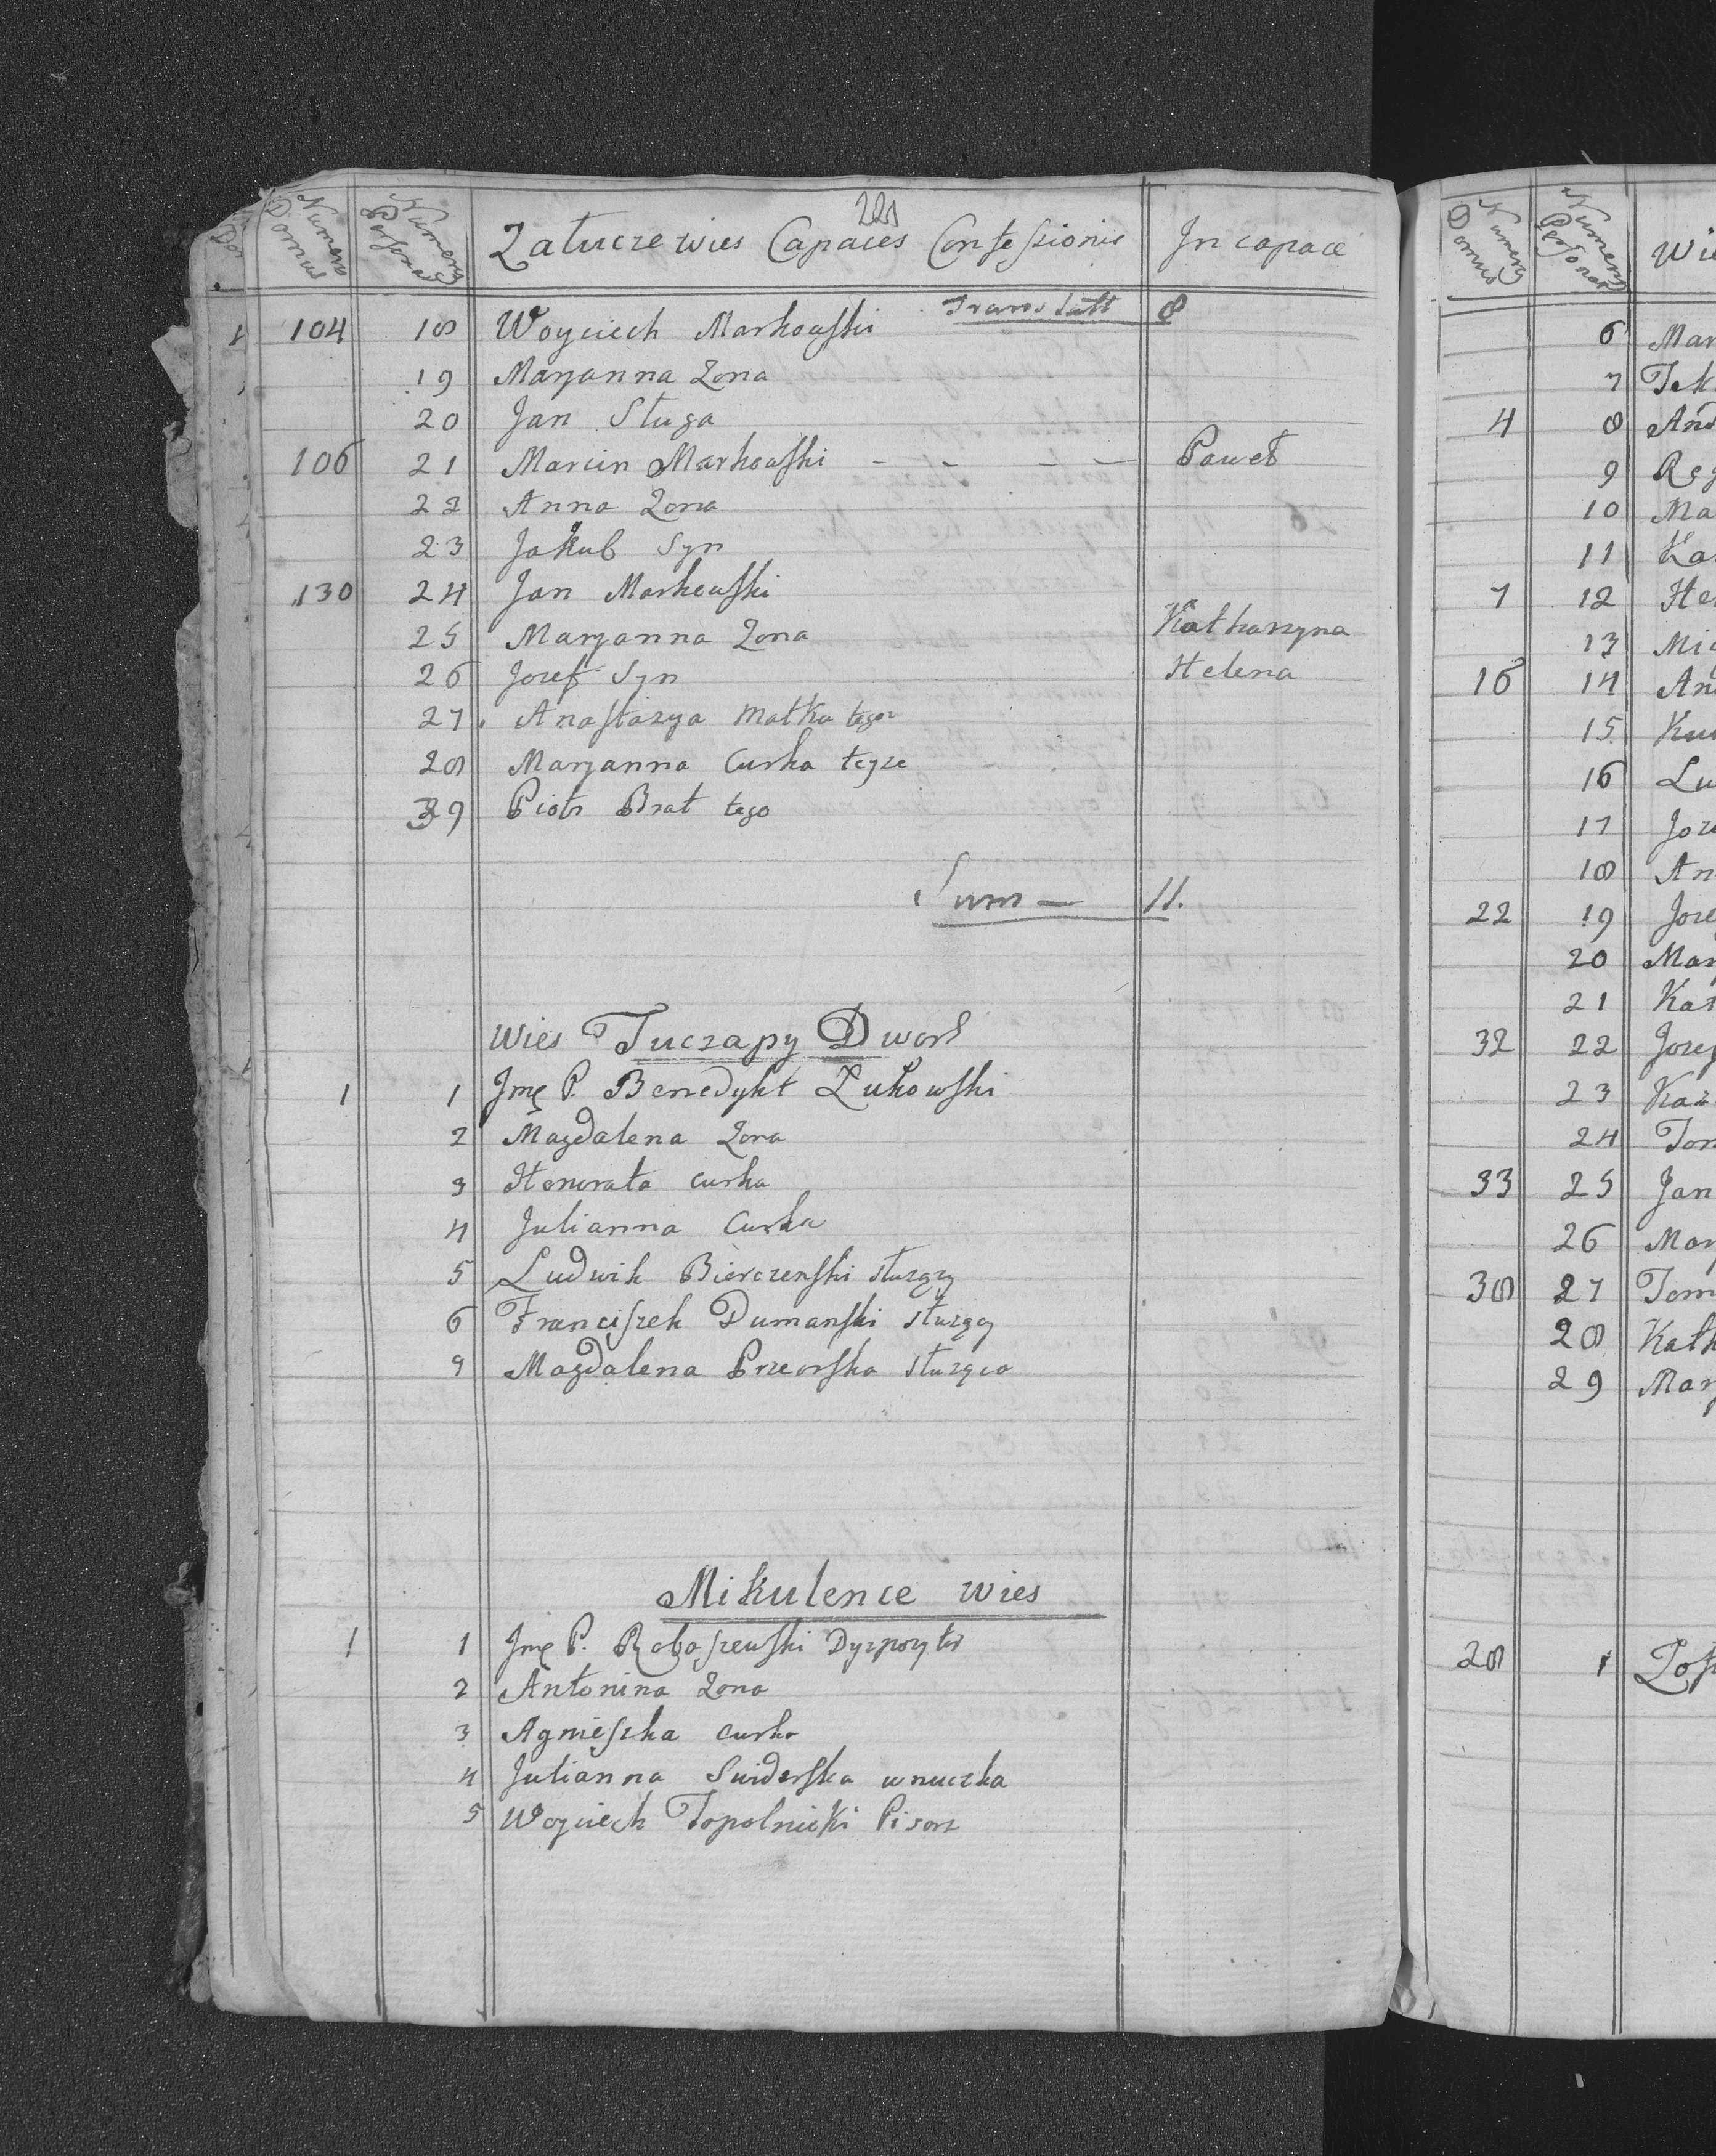 221
Numerus Domus Numerus Personar Załucze wies Capaces Confessionis Incapace
Translatt 8
104 18 Woyciech Markowski
19 Maryanna Zona
20 Jan Sługa
106 21 Marcin Markowski - - - - Paweł
22 Anna Zona
23 Jakub Syn
130 24 Jan Markowski
25 Maryanna Zona Katharzyna
26 Jozef Syn Helena
27 Anastazya Matka tegoz
28 Maryanna Curka teyze
39 Piotr Brat tego
Sum — 11.
Wies Tuczapy Dwor
1 1 Jmę P. Benedykt Zukowski
2 Magdalena Zona
3 Honorata curka
4 Julianna Curka
5 Ludwik Bierczenski słuzący
6 Franciszek Dumanski słuzący
9 Magdalena Przeorska słuząca
Mikulence wies
1 1 Jmę P. Dyzpozytor
2 Antonina Zona
3 Agnieszka curka
4 Julianna Swiderska wnuczka
5 Woyciech Topolnicki Pisarz
Numerus Domus Numerus Personar Wie
6 Mar
7 Tek
4 8 And
9 Reg
10 Ma
11 Ka
7 12 He
13 Mic
16 14 An
15 Ku
16 Lu
17 Joz
18 An
22 19 Joze
20 Mar
21 Kat
32 22 Jozef
23 Kaz
24 Tom
33 25 Jan
26 Mar
38 27 Tom
28 Kath
29 Mary
28 1 Zof